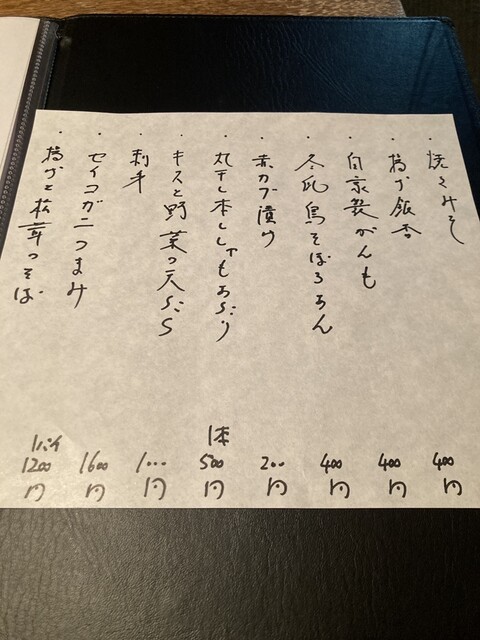 ・焼きみそ 400円
・揚げ銀杏 400円
・自家製がんも 400円
・冬瓜鳥そぼろあん 400円
・赤カブ漬け 200円
・丸干し本ししゃもあぶり 1本 500円
・キスと野菜の天ぷら 1000円
・刺身
・セイコガニつまみ 1600円
・揚げと松茸のそば 1パイ 1200円